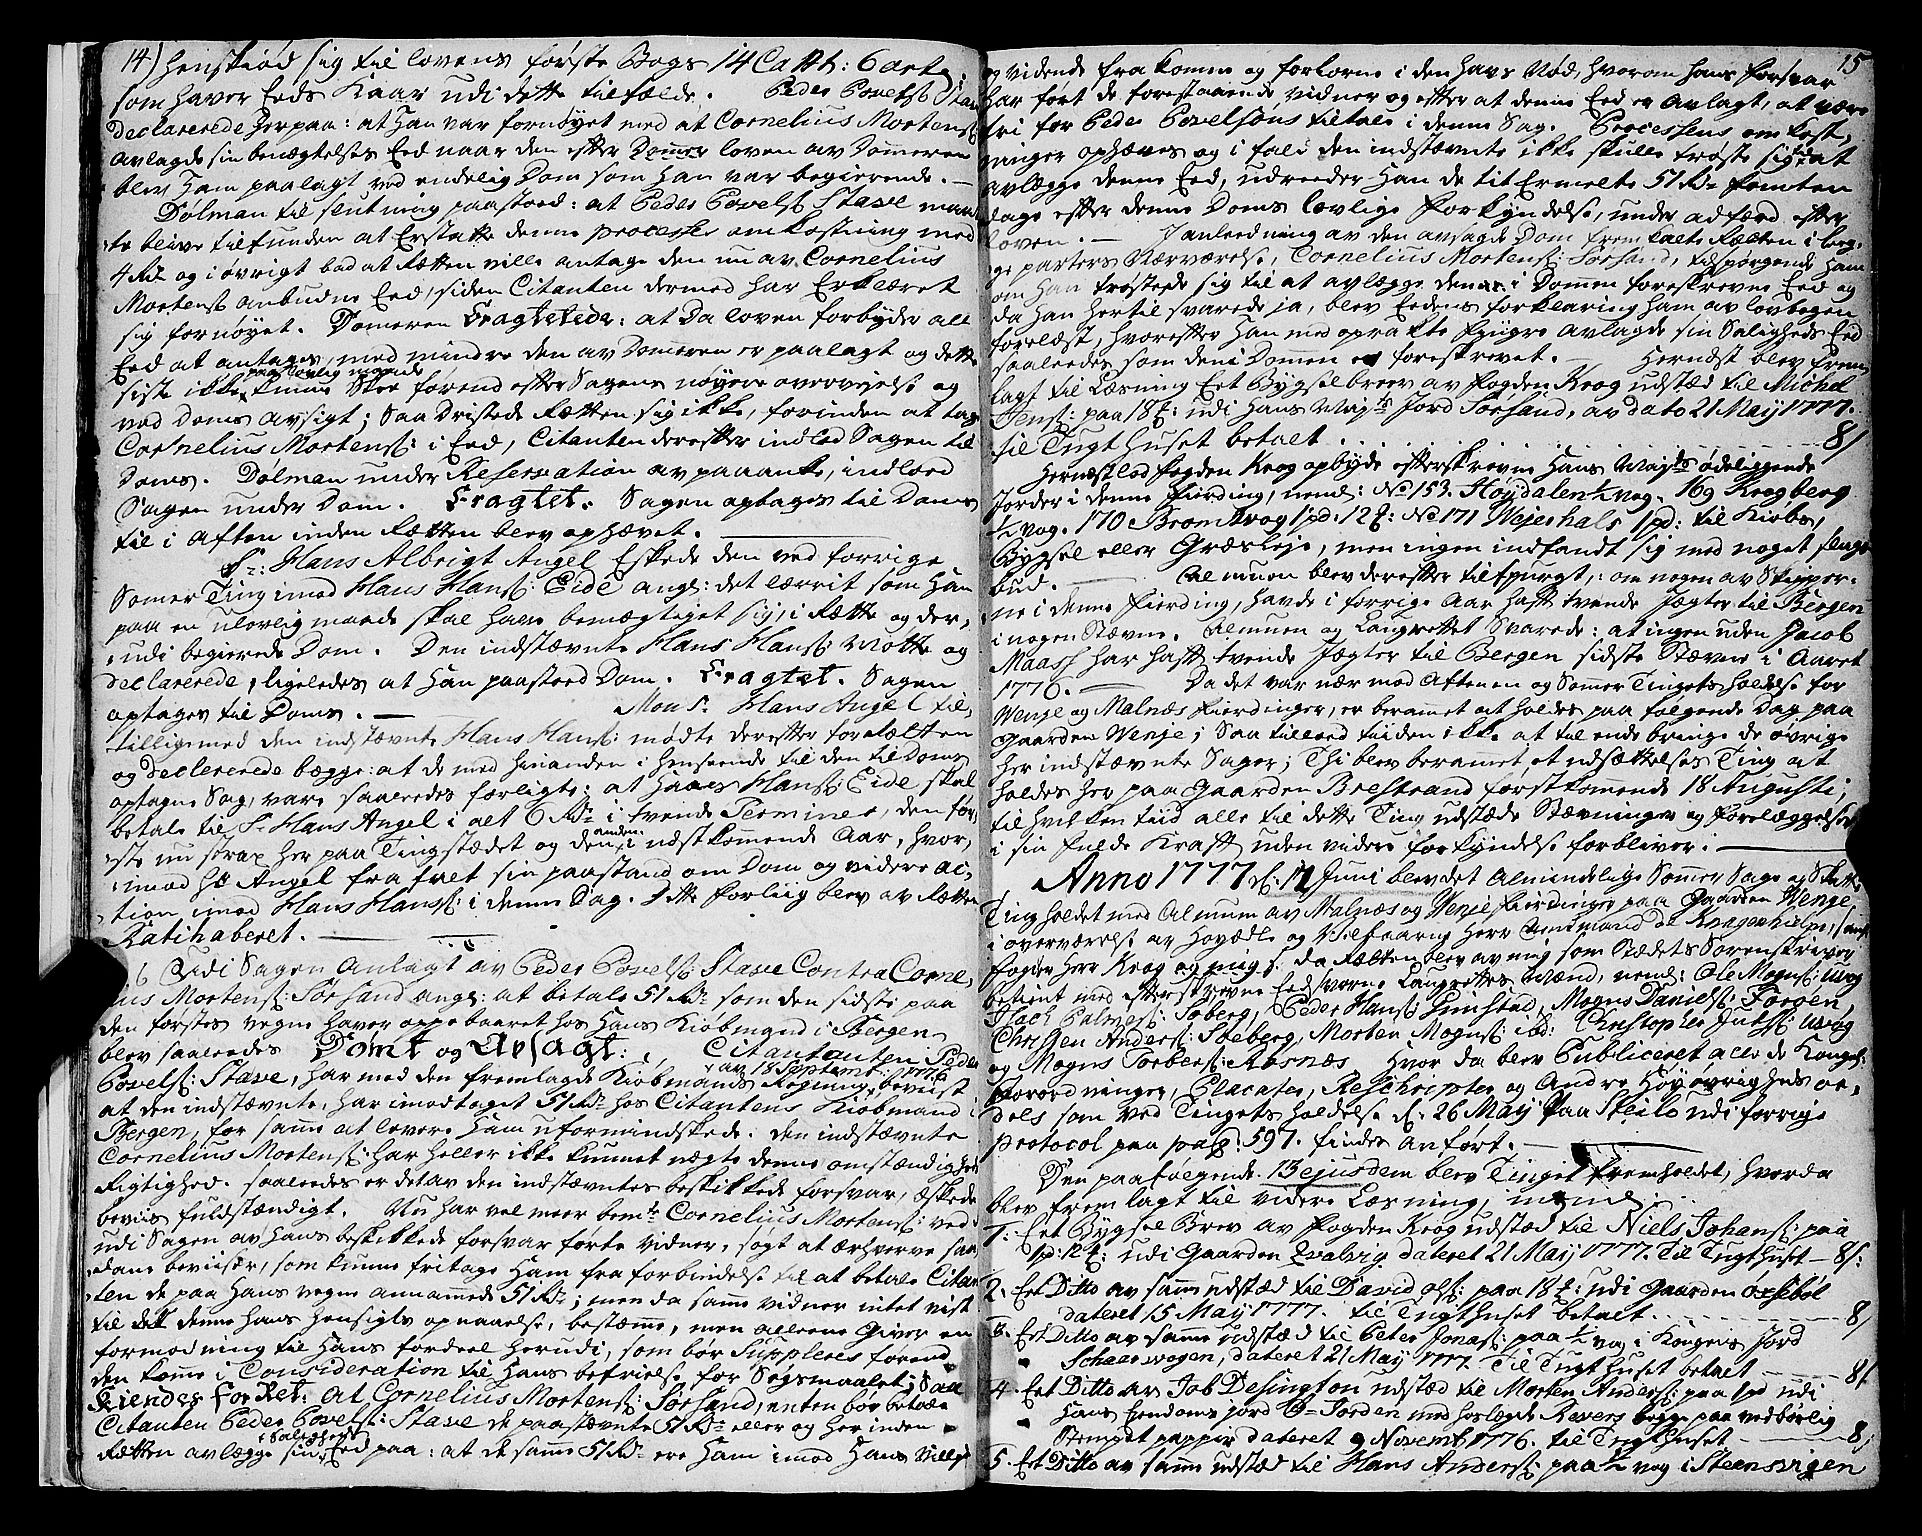 14) henskiød sig til lovens første Bogs 14 Capt: 6 art:
som haver Eeds Kaar udi dette tilfælde. Peder Povels: Stave
declarerede herpaa: at Han var fornøyet med at Cornelius Mortens:
avlagde sin benægtelses Eed naar den efter loven av Dommeren
blev Ham paalagt ved endelig Dom som Han var begierende. —
Dølman til slutning paastod: at Peder Povels: Stave maat-
te blive tilfunden at Erstatte denne processes omkostning med
4 Rdr og i øvrigt bad at Rætten ville antage den nu av Cornelius
Mortens: anbudne Eed, siden Citanten dermed har Erklæret
sig fornøyet. Domeren Eragtede: at Da loven forbyder all
Eed at antages, med mindre den av Domeren er paalagt og dette
sidste ikke paa lovlig maade kunne Skee førend efter Sagens nøyere overvejelse og
ved Doms avsigt; Saa Dristede Rætten sig ikke, forinden at tage
Cornelius Mortens: i Eed, Citanten derefter indlod Sagen til
Doms. Dølman under Reservation av paaanke, indlod
Sagen under Dom. Eragtet. Sagen optages til Doms
til i Aften inden Rætten blev ophævet.
Sr: Hans Albrigt Angel Eskede den ved forrige
Somer Ting imod Hans Hans: Eide angl: det lærrit som Han
paa en ulovlig maade skal have bemægtiget sig, i Rætte og der-
udi begierede Dom. Den indstævnte Hans Hans: Mødte og
declarerede, ligeledes at Han paastod Dom. Eragtet. Sagen
optages til Doms. — Mons. Hans Angel til-
tilligemed den indstævnte Hans Hans: mødte derefter for Rætten
og declarerede begge: at de med hinanden i Henseende til den til Doms
optagne Sag, vare saaledes forligte: at Hans Hans: Eide skal
betale til Sr Hans Angel i alt 6 Rdr i tvende Terminer, den før-
ste nu strax her paa Tingstædet og den anden i næstkomende Aar, hvor-
imod Hr Angel frafalt sin paastand om Dom og videre ac-
tion imod Hans Hans: i denne Sag. Dette forliig blev av Rætten
Ratihaberet. —
6 Udi Sagen Anlagt av Peder Povels: Stave Contra Corne-
lius Mortens: Sørsand angl: at betale 51 Rdr som den sidste paa
den førstes vegne haver oppebaaret hos Hans Kiøbmand i Bergen
blev saaledes Dømt og Avsagt: Citantanten Peder
Povels: Stave, har med den fremlagde Kiøbmands Regning av 18 Septembr: 1776 beviist
at den indstævnte, har imodtaget 51 Rdr hos Citantens Kiøbmand i
Bergen, for samme at levere Ham uformindskede. Den indstævnte
Cornelius Mortens: har heller ikke kunnet nægte denne omstændigheds
Rigtighed. saaledes er det av den indstævntes beskikkede forsvar, æskede
beviis fuldstændigt. Nu har vel meerbemte Cornelius Mortens: ved
udi Sagen av Hans beskikkede forsvar førte vidner, søgt at erhverve saa-
dane beviiser, som kunne fritage Ham fra forbindelse til at betale Citan-
ten de paa Hans vegne annammede 51 Rdr; men da samme vidner intet vist
til denne Hans Hensigts opnaaelse, bestemme, men alleene Giver en
formodning til Hans fordeel herudi, som bør Suppleres førend
den komme i Consideration til Hans befrielse for Søgsmaalet; Saa
Kiendes for Ret: at Cornelius Mortens: Sørsand, enten bør betale
Citanten Peder Povels: Stave de paastævnte 51 Rdr eller og Her inden
Rætten avlægge sin Saligheds Eed paa: at de samme 51 Rdr ere Ham imod Hans Villje
15
og vidende frakomne og forlorne i den Havs Nød, hvorom Hans forsvar
Har ført de forestaaende vidner og efter at denne Eed er avlagt, at være
fri for Peder Povelsøns tiltale i denne Sag. Processens omkost-
ninger ophæves og i fald den indstævnte ikke skulle trøste sig til at
avlægge denne Eed, udreeder Han de tit Ermelte 51 Rdr femten
dage efter denne Doms lovlige forkyndelse, under adfærd efter
loven. — I anleedning av den avsagde Dom fremkalte Rætten i beg-
ge parters Nærværelse, Cornelius Mortens: Sørsand, tilspørgende Ham
om Han trøstede sig til at avlægge den i Dommen foreskrevne Eed og
da Han hertil svarede ja, blev Eedens forklaring Ham av lovbogen
forelæst, hvorefter Han med oprakte fingre avlagde sin Saligheds Eed
saaledes som den i Domen er foreskrevet. — Hernæst blev frem-
lagt til Læsning Eet Bygselbrev av fogden Krog udstæd til Michel
Jens: paa 18 ℔: udi Hans Mayts Jord Sørsand, av dato 21 May 1777.
til Tugthuset betalt . . . 8/
Hernæst lod fogden Krog opbyde efterskrevne Hans Mayts ødeliggende
Jorder i denne fierding, neml: No 153. Høydalen ½ vog. 169 Krogberg
½ vog. 170 Bromvog 1 pd: 12 ℔: No 171 Wejershals 1 pd: til Kiøbs,
Bygsel eller Græsleje, men ingen indfandt sig med noget slags
bud. — Almuen blev derefter tilspurgt,: om nogen av Skipper-
ne i denne fierding, havde i forrige Aar haft tvende Jægter til Bergen
i nogen Stævne. Almuen og Laugrettet Svarede: at ingen uden Jacob
Maass har haft tvende Jægter til Bergen sidste Stævne i Aaret
1776. — Da det var nær mod Aftenen og Somer Tingets holdelse for
Wenje og Malnæs fierdinger, er beramet at holdes paa følgende Dag paa
Gaarden Wenje; Saa tillod tiiden ikke at til ende bringe de øvrige
her indstævnte Sager; Thi blev beramet, et udsættelses Ting at
holdes her paa Gaarden Brestrand førstkomende 18 Augusti,
til hvilken tiid alle til dette Ting udstæde Stævninger og forelæggelser
i sin fulde Kraft uden videre forkyndelse forbliver. —
Anno 1777 d: 12 Juni blev det Almindelige Sommer Sage og Skatte
Ting holdet med Almuen av Malnæs og Wenje fierdinger paa Gaarden Wenje
i overværelse av Høyædle og Velbaarne Herr Amtmand De Knagenhielm, samt
fogden Herr Krog og da Rætten blev av mig som Stædets Sorenskriver
betient med efterskrevne Eedsvorne Laugrettes Mænd, neml: Ole Mogns: Uvog
Isach Palmes: Søberg, Peder Hans: Grimstad, Mogns Daniels: Forgen,
Christen Anders: Søeberg, Morten Mogns: ibd: Christopher Juls: Uvog
og Mogns Torbers: Aasnæs Hvor da blev Publiceret alle de Kongel:
Forordninger, Placater, Rescripter og Andre Høyøvrigheds or-
dels som ved Tingets holdelse d: 26 May paa Steilo udi forrige
protocol paa pag: 597. findes anført. —
Den paafølgende 13 ejusdem blev Tinget fremholdet, hvorda
blev fremlagt til videre Læsning, neml:
1. Eet Bygsel Brev av fogden Krog udstæd til Niels Johans: paa
1 pd: 12 ℔: udi Gaarden Qvalvig dateret 21 May 1777. Til Tugthuset — 8/:
2. Eet Ditto av samme udstæd til David Ols: paa 18 ℔: udi Gaarden Oxebøl
dateret 15 May 1777. til Tugthuset betalt . . . 8/
3. Eet Ditto av samme udstæd til Peter Jonas: paa ½ vog i Kongens Jord
Schaarvogen, dateret 21 May 1777. Til Tugthuset betalt — 8/
4. Eet Ditto av Job Desington udstæd til Morten Anders: paa 1 pd udi
Hans Eiendoms jord Jorden med hoslagde Revers begge paa vedbørlig
Stemplet pappir dateret 9 Novemb 1776. til Tugthuset — 8/
5. Eet Ditto av samme udstæd til Hans Anders: paa ½ vog i Steensvigen